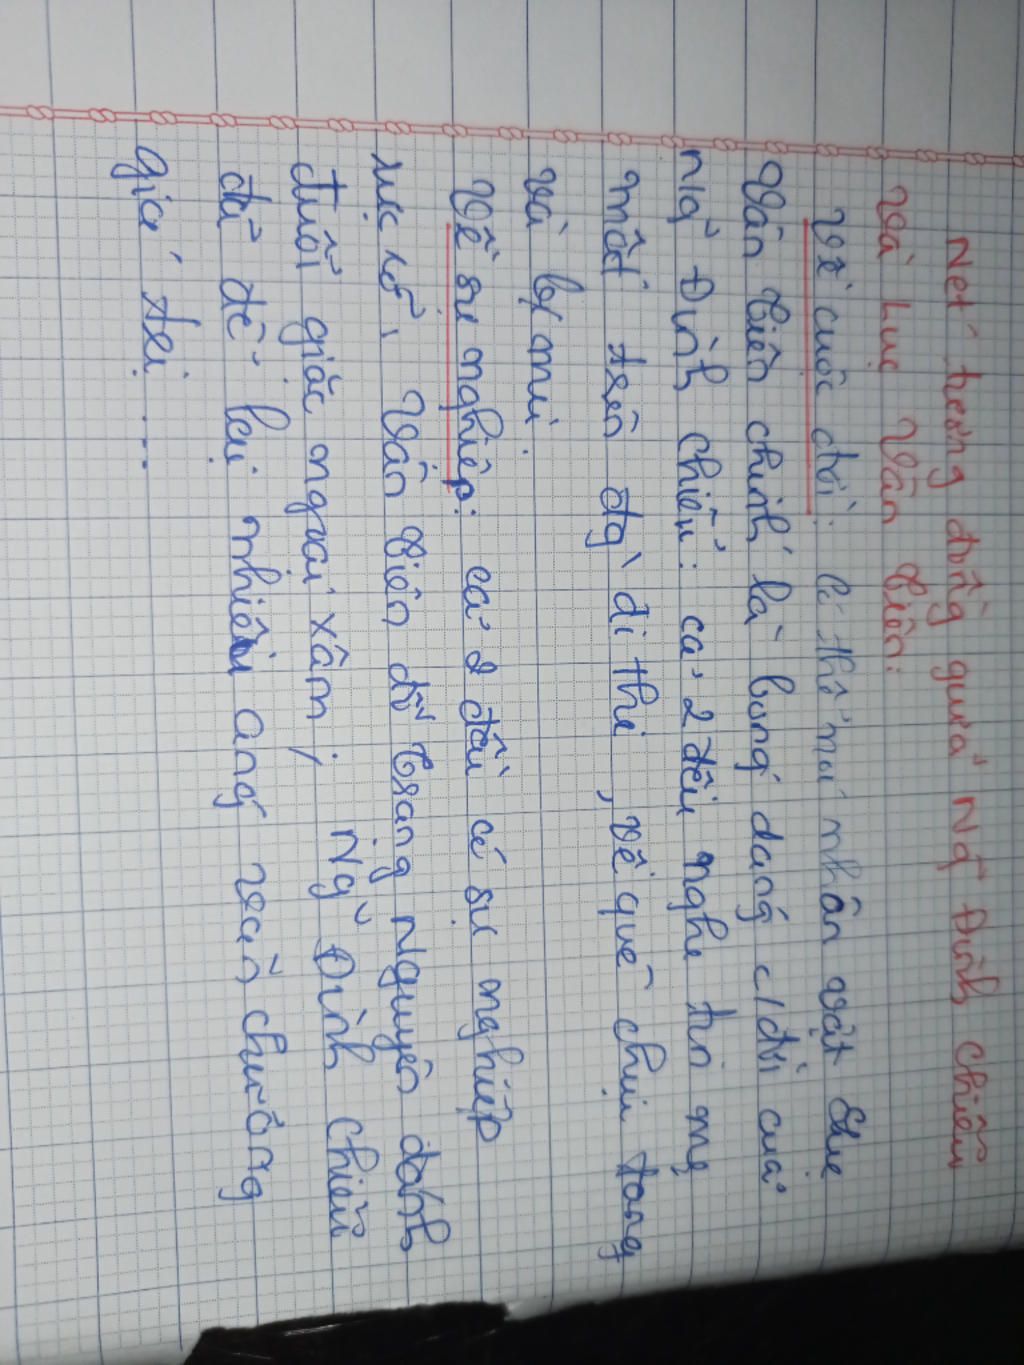 Nét tương đồng quá Ng~ Đình Chiểu
và Lục Vân Tiên:
Về cuộc đời: có thể nói nhân vật Lục
Vân Tiên chính là bóng dáng c/đời của
nhà Đình Chiểu: cả 2 đều nghe tin mẹ
mất trên đg` đi thi, về quê chịu tang
và bị mù.
Về sự nghiệp: cả 2 đều có sự nghiệp
rực rỡ, Vân Tiên đỗ Trạng Nguyên đánh
đuổi giặc ngoại xâm; Ng~ Đình Chiểu
đã để lại nhiều áng văn chương
giá trị ...